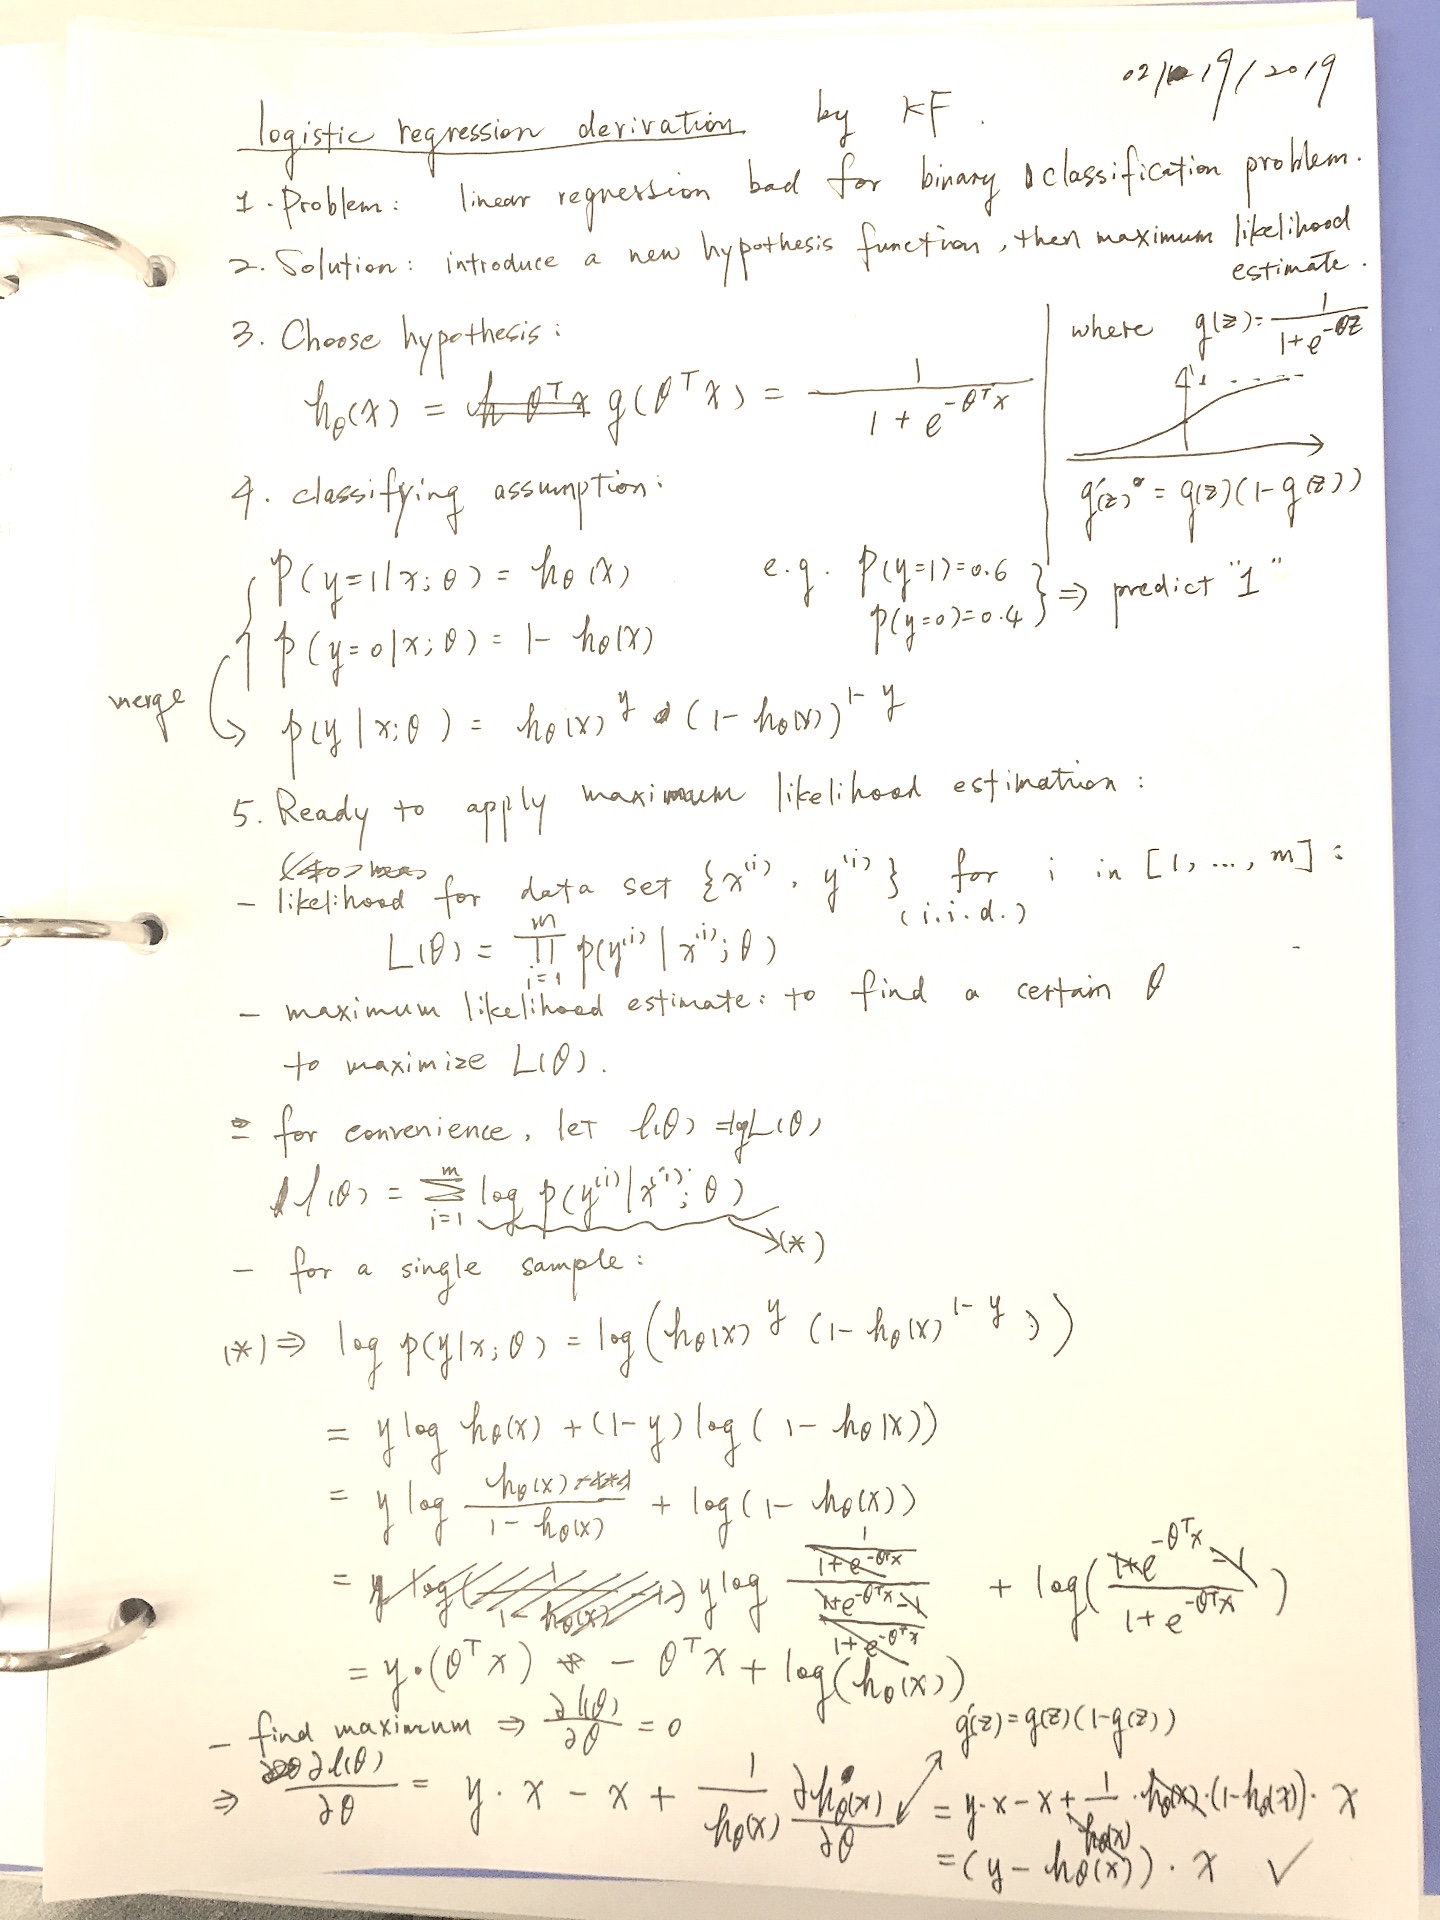 02/19/2019
logistic regression derivation by KF.
1. Problem: linear regression bad for binary classification problem.
2. Solution: introduce a new hypothesis function, then maximum likelihood
estimate.
3. Choose hypothesis:
where g(z) = 1 / (1 + e^-θz)
h_θ(x) = g(θ^T x) = 1 / (1 + e^-θ^T x)
1
g'(z) = g(z)(1-g(z))
4. classifying assumption:
{ P(y=1|x;θ) = h_θ(x) e.g. P(y=1)=0.6
P(y=0|x;θ) = 1- h_θ(x) P(y=0)=0.4 } ⇒ predict "1"
merge
p(y|x;θ) = h_θ(x)^y · (1- h_θ(x))^1-y
5. Ready to apply maximum likelihood estimation:
- likelihood for data set {x^(i), y^(i)} for i in [1, ..., m]:
(i.i.d.)
L(θ) = ∏_{i=1}^m p(y^(i) | x^(i); θ)
- maximum likelihood estimate: to find a certain θ
to maximize L(θ).
- for convenience, let l(θ) = lgL(θ)
l(θ) = ∑_{i=1}^m log p(y^(i)|x^(i); θ)
(*)
- for a single sample:
(*) ⇒ log p(y|x;θ) = log(h_θ(x)^y (1- h_θ(x)^1-y))
= y log h_θ(x) + (1-y) log(1- h_θ(x))
= y log h_θ(x) / (1- h_θ(x)) + log(1- h_θ(x))
= y log (1 / (1+e^-θ^T x)) / ((1+e^-θ^T x -1) / (1+e^-θ^T x)) + log((1+e^-θ^T x -1) / (1+e^-θ^T x))
= y·(θ^T x) - θ^T x + log(h_θ(x))
- find maximum ⇒ ∂l(θ)/∂θ = 0
g'(z)=g(z)(1-g(z))
⇒ ∂l(θ)/∂θ = y·x - x + 1/h_θ(x) ∂h_θ(x)/∂θ = y·x - x + 1/h_θ(x) · h_θ(x)·(1-h_θ(x))· x
= (y - h_θ(x))· x ✓